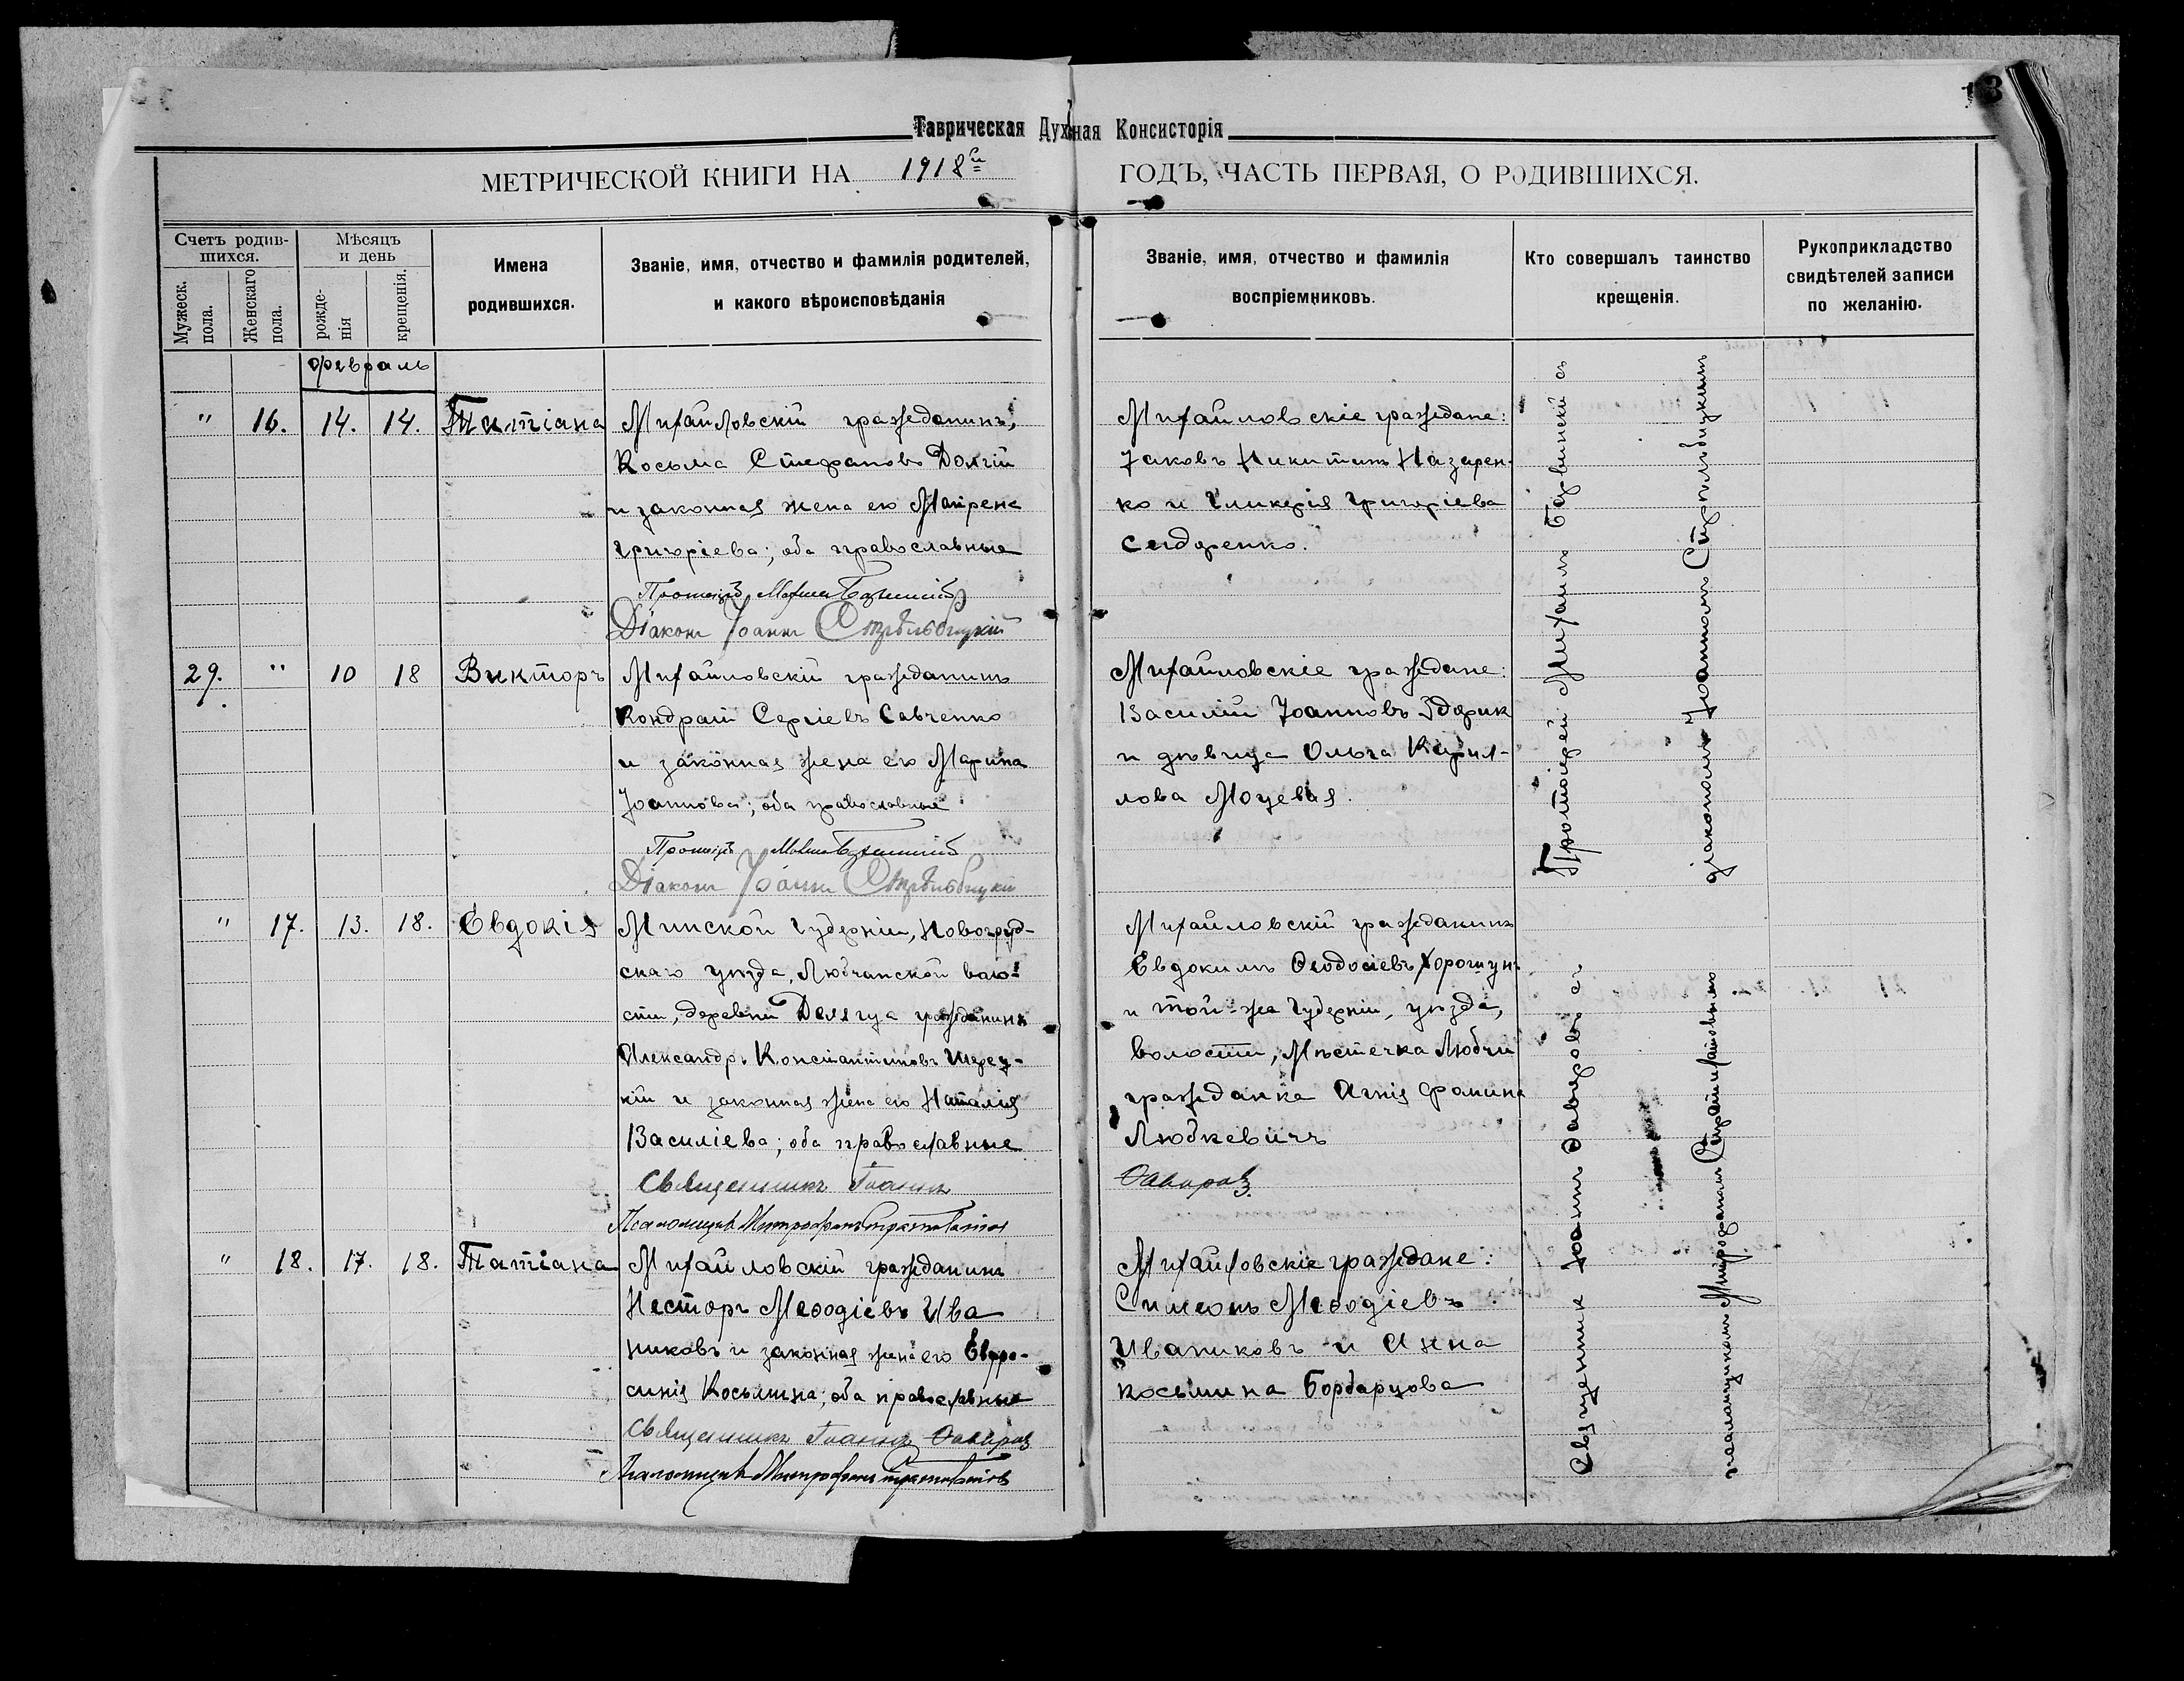 Таврическая Духовная Консисторія
МЕТРИЧЕСКОЙ КНИГИ НА 1918й ГОДЪ, ЧАСТЬ ПЕРВАЯ, О РОДИВШИХСЯ.
Счетъ родившихся.
Мужеск. пола.
Женскаго пола.
Мѣсяцъ и день
рожденія
крещенія.
Имена
родившихся.
Званіе, имя, отчество и фамилія родителей,
и какого вѣроисповѣданія
Званіе, имя, отчество и фамилія
воспріемниковъ.
Кто совершалъ таинство
крещенія.
Рукоприкладство
свидѣтелей записи
по желанію.
Февраль
" 16. 14. 14. Татіана
Михайловскій гражданинъ,
Косьма Стефановъ Долгій
и законная жена его Матрена
Григоріева; оба православные
Протоіерей Михаилъ
Діаконъ Іоаннъ Стрѣльбицкій
Михайловскіе граждане:
Іаковъ Никитинъ Назарен-
ко и Гликерія Григоріева
Сидоренко.
29. " 10 18 Викторъ
Михайловскій гражданинъ
Кондратій Сергіевъ Савченко
и законная жена его Марина
Іоаннова; оба православные
Протоіерей Михаилъ
Діаконъ Іоаннъ Стрѣльбицкій
Михайловскіе граждане:
Василій Іоанновъ Здорик
и дѣвица Ольга Кирил-
лова Моцевая.
" 17. 13. 18. Евдокія
Минской губерніи, Новогруд-
скаго уѣзда, Любчанской воло-
сти, деревни Делятуа гражданинъ
Александръ Константиновъ Шерец-
кій и законная жена его Наталія
Василіева; оба православные
Священникъ Іоаннъ Заваровъ
Псаломщикъ Митрофанъ
Михайловскій гражданинъ
Евдокимъ Ѳеодосіевъ Хорошун
и той-же губерніи, уѣзда,
волости, мѣстечка Любчи
гражданка Агнія Фомина
Любкевичъ
" 18. 17. 18. Татіана
Михайловскій гражданинъ
Несторъ Меѳодіевъ Ива
никовъ и законная жена его Евфро-
синія Косьмина; оба православные
Священникъ Іоаннъ Заваровъ
Псаломщикъ Митрофанъ
Михайловскіе граждане:
Симеонъ Меѳодіевъ
Иваниковъ и Анна
Косьмина Бордарцова
Протоіерей Михаилъ съ
діакономъ Іоанномъ Стрѣльбицкимъ
Священник Іоаннъ Заваровъ съ
псаломщикомъ Митрофаномъ